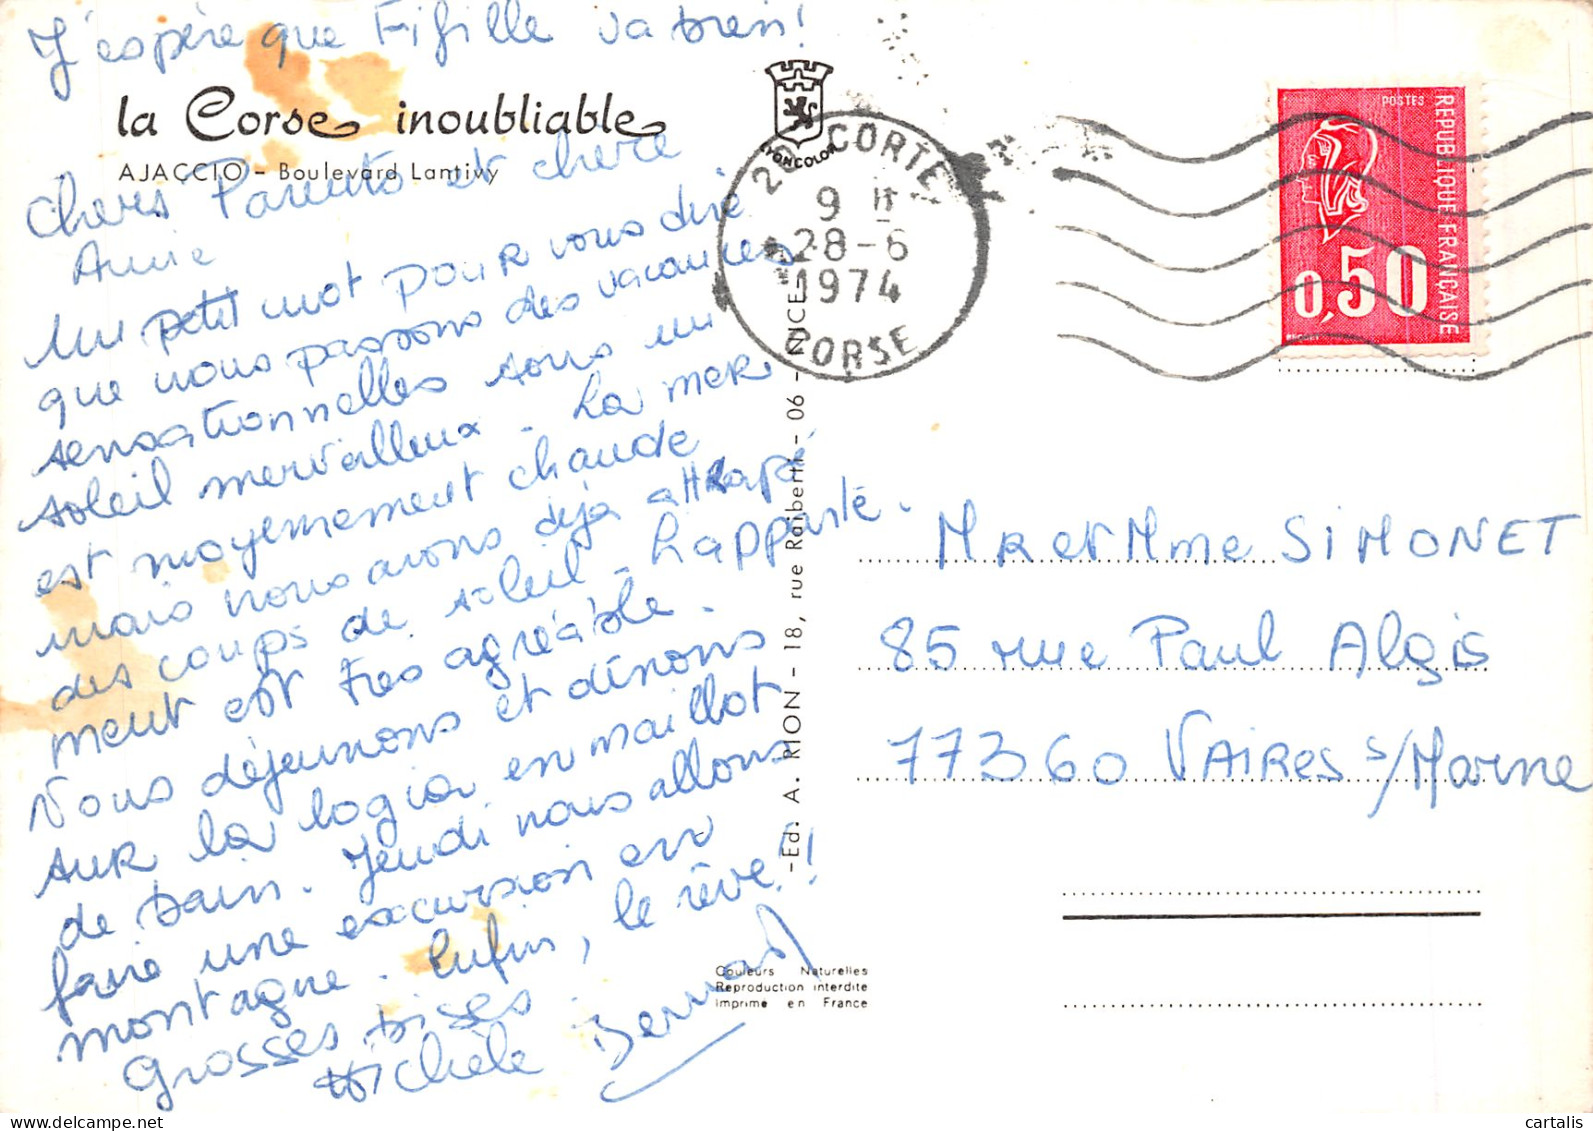 J'espère que Fifille va bien!
la Corse inoubliable
AJACCIO - Boulevard Lantivy
Chers Parents et chère
Annie
Un petit mot pour vous dire
que nous passons des vacances
sensationnelles sous un
soleil merveilleux. La mer
est moyennement chaude
mais nous avons déjà attrapé
des coups de soleil. L'apparte-
ment est très agréable.
Nous déjeunons et dînons
sur la logia en maillot
de bain. Jeudi nous allons
faire une excursion en
montagne. Enfin, le rêve!!
Grosses bises.
Michèle Bernard
LYONCOLOR
20 CORTE
9 H
28-6
1974
CORSE
-Ed. A. RION - 18, rue Raiberti - 06 - NICE-
Couleurs Naturelles
Reproduction interdite
Imprimé en France
POSTES
REPUBLIQUE FRANÇAISE
0,50
MR et Mme SIMONET
85 rue Paul Algis
77360 VAIRES s/Marne
cartalis